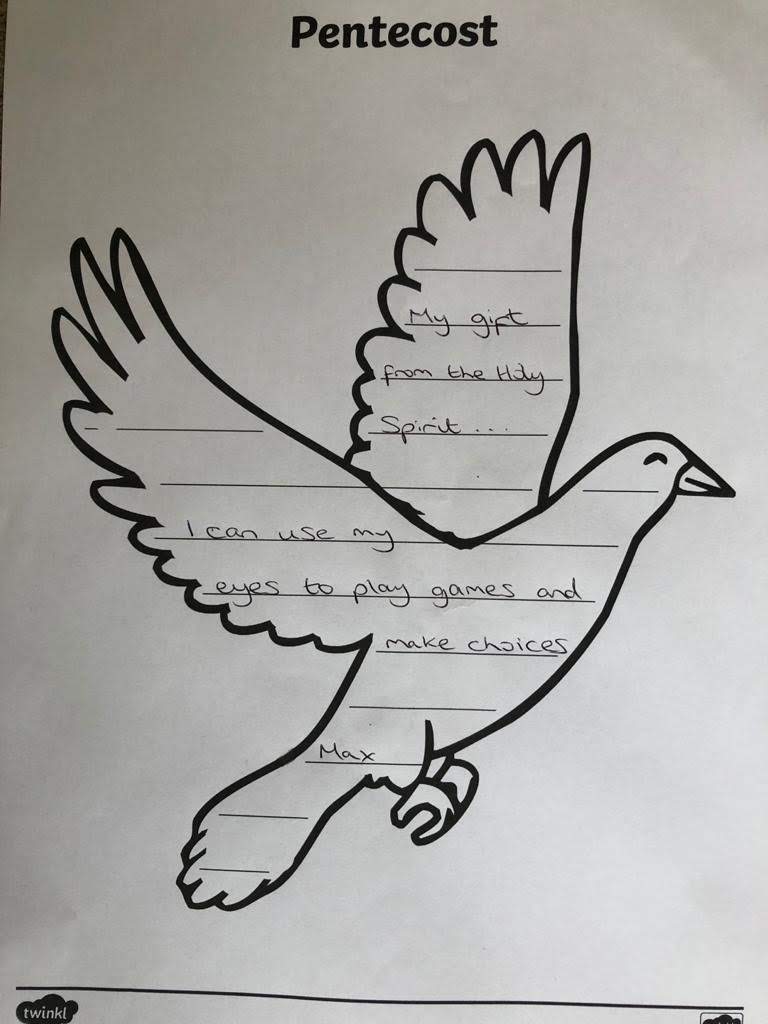 Pentecost
My gift
from the Holy
Spirit...
I can use my
eyes to play games and
make choices
Max
twinkl